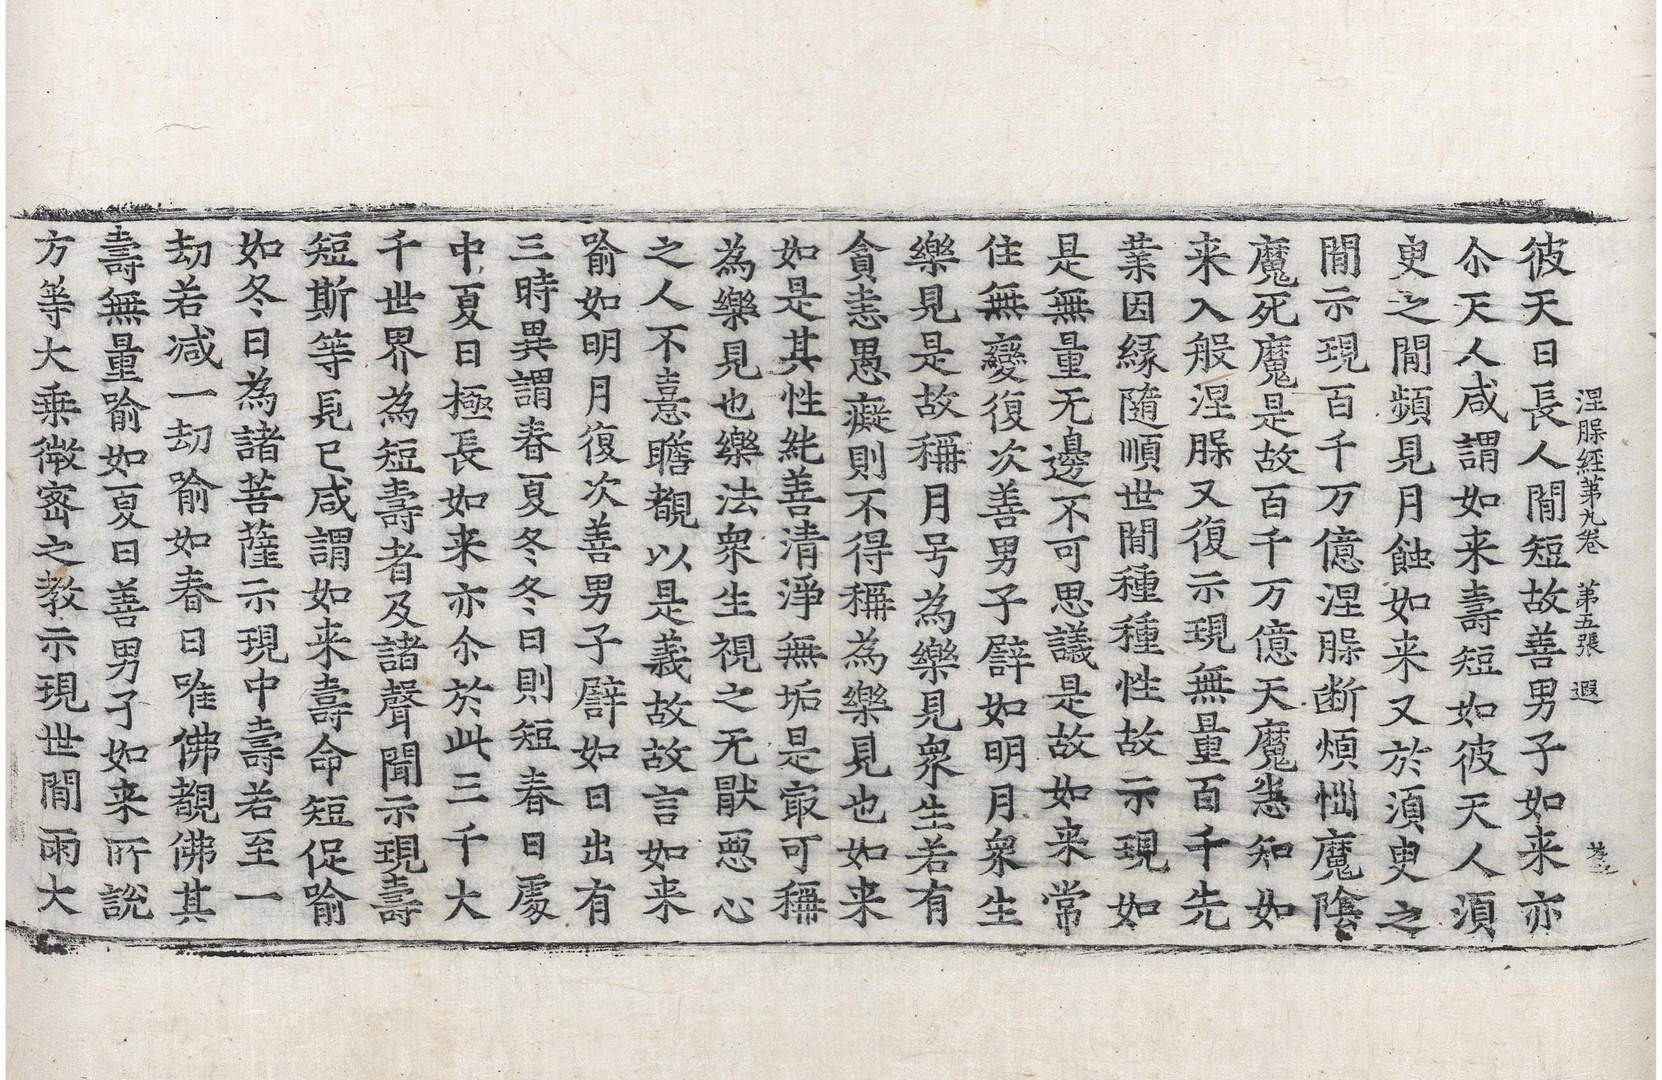 涅槃經第九卷　第五張　遐
彼天日長人閒短故善男子如来亦
尒天人咸謂如来壽短如彼天人湏
臾之閒頻見月蝕如来又於湏臾之
閒示現百千万億涅槃断煩惱魔陰
魔死魔是故百千万億天魔悉知如
来入般涅槃又復示現無量百千先
業因縁隨順世閒種種性故示現如
是無量无邊不可思議是故如来常
住無變復次善男子譬如明月衆生
樂見是故稱月号為樂見衆生若有
貪恚愚癡則不得稱為樂見也如来
如是其性純善清淨無垢是㝡可稱
為樂見也樂法衆生視之无猒惡心
之人不憙瞻覩以是義故故言如来
喻如明月復次善男子譬如日出有
三時異謂春夏冬冬日則短春日處
中夏日極長如来亦尒於此三千大
千世界為短壽者及諸聲聞示現壽
短斯等見已咸謂如来壽命短促喻
如冬日為諸菩薩示現中壽若至一
劫若减一劫喻如春日唯佛覩佛其
壽無量喻如夏日善男子如来所說
方等大乗微密之教示現世閒雨大